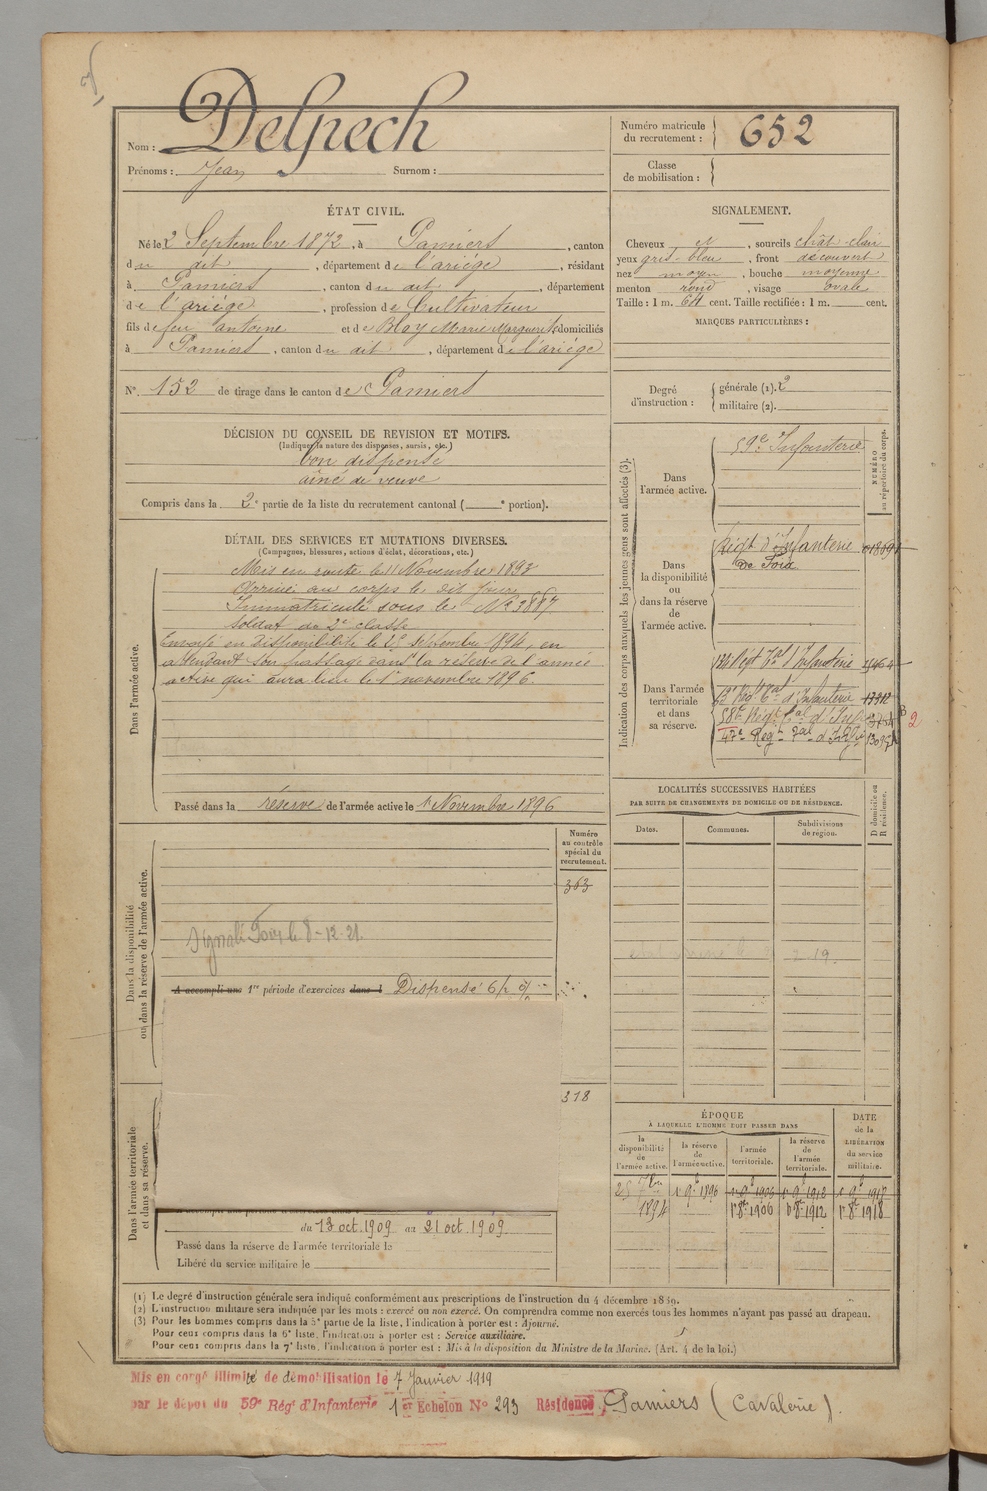 Nom : Delpech
Prénoms : Jean Surnom :
Numéro matricule du recrutement : 652
Classe de mobilisation :
ÉTAT CIVIL.
Né le 2 Septembre 1872, à Pamiers, canton
du dit, département de l'ariége, résidant
à Pamiers, canton du dit, département
de l'ariége, profession de Cultivateur
fils de feu antoine et de Bloy Marie Marguerite domiciliés
à Pamiers, canton du dit, département de l'ariége
N° 152 de tirage dans le canton de Pamiers
SIGNALEMENT.
Cheveux et, sourcils chât-clair
yeux gris-bleu, front découvert
nez moyen, bouche moyenne
menton rond, visage ovale
Taille : 1 m. 64 cent. Taille rectifiée : 1 m. cent.
MARQUES PARTICULIÈRES :
Degré d'instruction : générale (1). 2
militaire (2).
DÉCISION DU CONSEIL DE REVISION ET MOTIFS.
(Indiquer la nature des dispenses, sursis, etc.)
bon dispensé
ainé de veuve
Compris dans la 2e partie de la liste du recrutement cantonal ( e portion).
DÉTAIL DES SERVICES ET MUTATIONS DIVERSES.
(Campagnes, blessures, actions d'éclat, décorations, etc.)
Dans l'armée active.
Mis en route le 11 Novembre 1893
Arrivé au corps le dit jour
Immatriculé sous le N° 3887
Soldat de 2e classe
Envoyé en disponibilité le 25 Septembre 1894, en
attendant son passage dans la réserve de l'armée
active qui aura lieu le 1er novembre 1896.
Passé dans la réserve de l'armée active le 1er Novembre 1896
Indication des corps auxquels les jeunes gens sont affectés (3).
NUMÉRO au répertoire du corps.
Dans l'armée active.
59e Infanterie
Dans la disponibilité ou dans la réserve de l'armée active.
Régt d'Infanterie
de Foix
Dans l'armée territoriale et dans sa réserve.
Régt Tal d'Infanterie
Régt Tal d'Infanterie
58e Régt Tal d'Inf
2
LOCALITÉS SUCCESSIVES HABITÉES
PAR SUITE DE CHANGEMENTS DE DOMICILE OU DE RÉSIDENCE.
Dates. Communes. Subdivisions de région. D domicile ou R résidence.
Dans la disponibilité ou dans la réserve de l'armée active.
Numéro au contrôle spécial du recrutement.
363
Signalé Foix le 8-12-21.
A accompli une 1re période d'exercices dans l Dispensé
318
Dans l'armée territoriale et dans sa réserve.
du 13 oct. 1909 au 21 oct. 1909
Passé dans la réserve de l'armée territoriale le
Libéré du service militaire le
ÉPOQUE
À LAQUELLE L'HOMME DOIT PASSER DANS
la disponibilité de l'armée active. la réserve de l'armée active. l'armée territoriale. la réserve de l'armée territoriale. DATE de la LIBÉRATION du service militaire.
25 7bre 1er 9bre 1896 1er 9bre 1906 1er 9bre 1912 1er 9bre 1918
1894 1er 8bre 1906 1er 8bre 1912 1er 8bre 1918
(1) Le degré d'instruction générale sera indiqué conformément aux prescriptions de l'instruction du 4 décembre 1889.
(2) L'instruction militaire sera indiquée par les mots : exercé ou non exercé. On comprendra comme non exercés tous les hommes n'ayant pas passé au drapeau.
(3) Pour les hommes compris dans la 5e partie de la liste, l'indication à porter est : Ajourné.
Pour ceux compris dans la 6e liste, l'indication à porter est : Service auxiliaire.
Pour ceux compris dans la 7e liste, l'indication à porter est : Mis à la disposition du Ministre de la Marine. (Art. 4 de la loi.)
Mis en congé illimité de démobilisation le 7 Janvier 1919
par le dépôt du 59e Régt d'Infanterie 1er Echelon N° 293 Résidence, Pamiers (Cavalerie).